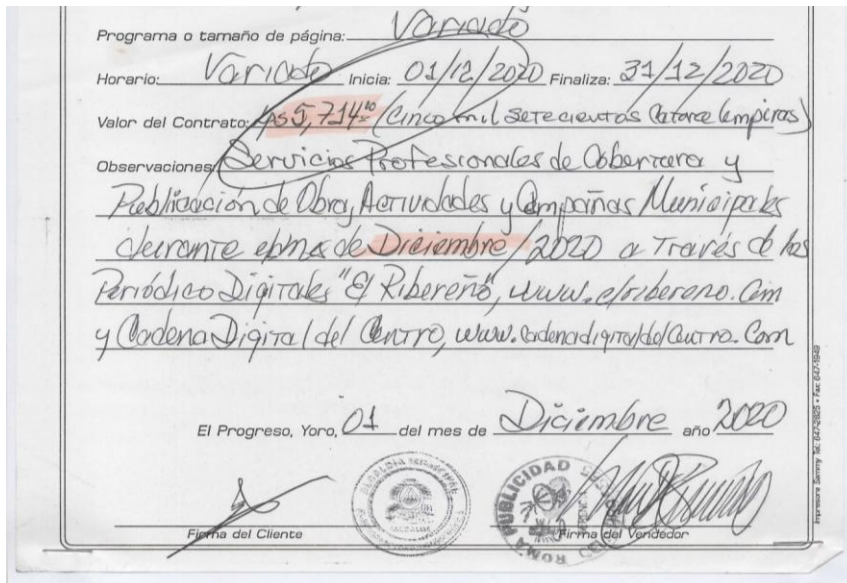 Programa o tamaño de página: Variado
Horario: Variado Inicia: 01/12/2020 Finaliza: 31/12/2020
Valor del Contrato: Lps 5,714.00 (Cinco mil setecientos Catorce lempiras)
Observaciones: Servicios Profesionales de Cobertura y
Publicación de Obra, Actividades y Campañas Municipales
durante el mes de Diciembre/2020 a Través de los
Periódico Digitales "El Ribereño", www.elribereno.Com
y Cadena Digital del Centro, www.cadenadigitaldelCentro.Com
El Progreso, Yoro, 01 del mes de Diciembre año 2020
ALCALDIA MUNICIPAL
ROMA PUBLICIDAD
Firma del Cliente
Firma del Vendedor
Impresora Sammy Tel.: 647-2825 • Fax: 647-1949